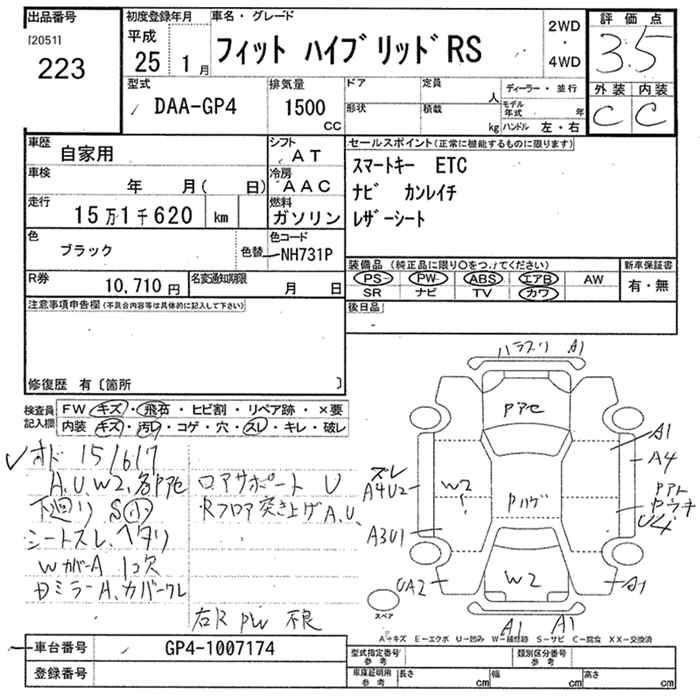 出品番号
[2051]
223
初度登録年月
平成
25 1月
車名・グレード
フィット ハイブリッドRS
2WD
・
4WD
評価点
3.5
外装 内装
C C
型式
DAA-GP4
排気量
1500
CC
ドア
形状
定員
人
積載
kg
ディーラー・並行
モデル年式 年
ハンドル 左・右
車歴
自家用
シフト
AT
車検
年 月( 日)
冷房
AAC
走行
15万1千620 km
燃料
ガソリン
色
ブラック
色替
色コード
NH731P
R券
10,710円
名変通知期限
月 日
セールスポイント(正常に機能するものに限ります)
スマートキー ETC
ナビ カンレイチ
レザーシート
装備品(純正品に限り○をつけてください)
PS PW ABS エアB AW
SR ナビ TV カワ
新車保証書
有・無
後日品
注意事項申告欄(不具合内容等は具体的に記入して下さい)
修復歴 有〔箇所 〕
検査員
記入欄
FW キズ・飛石・ヒビ割・リペア跡・×要
内装 キズ・汚レ・コゲ・穴・スレ・キレ・破レ
オド 151617
A,U,W2,各Pアセ
下廻り S小
シートスレ、ヘタリ
Wカバー A 1コ欠
Dミラー A、カバークレ
ロアサポート U
Rフロア突き上げA,U,
右R PW 不良
ハラブリ A1
Pアセ
A1
A4
ズレ
A4U2
W2
Pハゲ
U4
A3U1
UA2
W2
A1
A1 A1
スペア
A−キズ E−エクボ U−凹み W−補修跡 S−サビ C−腐食 XX−交換済
車台番号
GP4-1007174
登録番号
型式指定番号
参考
類別区分番号
参考
車庫証明用
参考
長さ cm
幅 cm
高さ cm